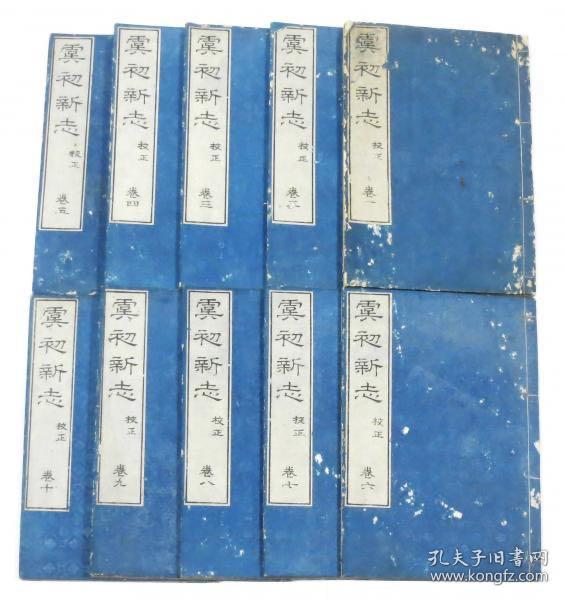 虞初新志
校正
卷一
虞初新志
校正
卷二
虞初新志
校正
卷三
虞初新志
校正
卷四
虞初新志
校正
卷五
虞初新志
校正
卷六
虞初新志
校正
卷七
虞初新志
校正
卷八
虞初新志
校正
卷九
虞初新志
校正
卷十
孔夫子旧书网
www.kongfz.com